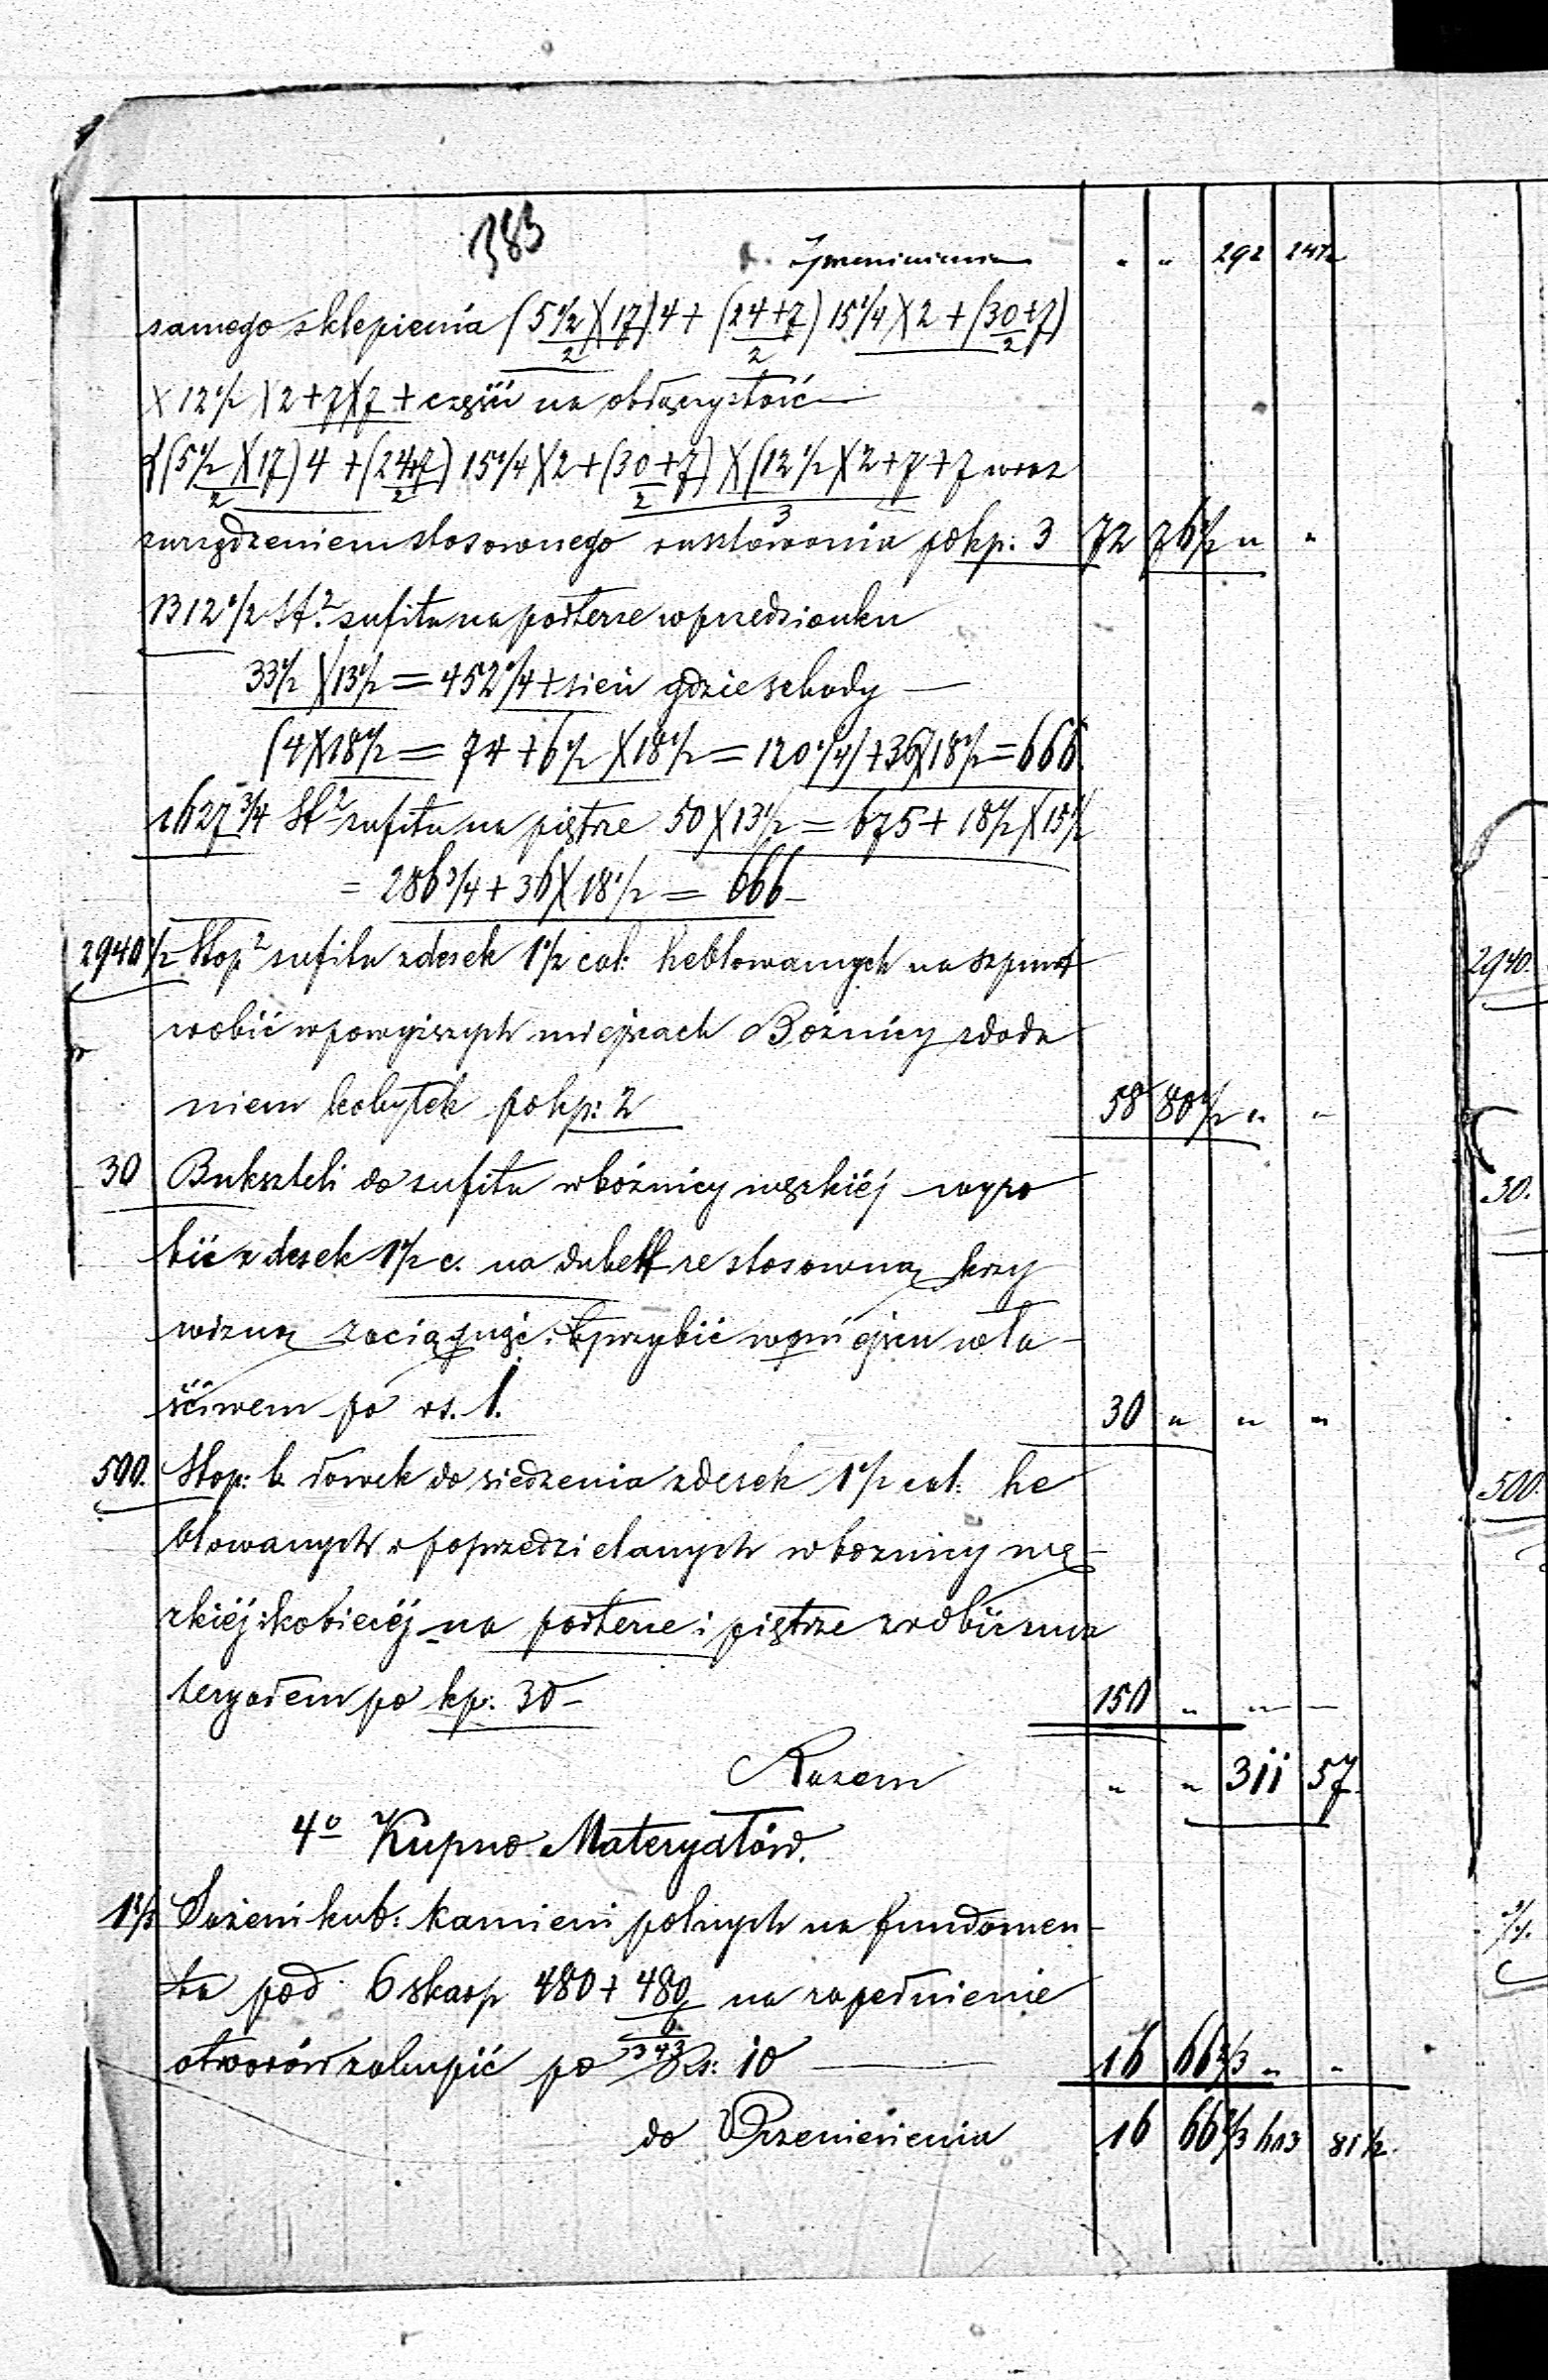 383
Zprzeniesienia " " 292 24 1/2
samego sklepienia (5 1/2 X 17)/2 4 + (24+7)/2 15 1/4 X 2 + (30+7)/2
X 12 1/2 X 2 + 7 X 7 + część na obłączystość
{(5 1/2 X 17)/2 4 + (24+7)/2 15 1/4 X 2 + (30+7)/2 X (12 1/2 X 2 + 7 + 7 wraz
3
zurządzeniem stosownego rusztowania po kp: 3 72 76 1/2 " "
1312 1/2 St.² sufitu na parterze w przedsionku
33 1/2 X 13 1/2 = 452 1/4 + sień gdzie schody —
(4 X 18 1/2 = 74 + 6 1/2 X 18 1/2 = 120 1/4) + 36 X 18 1/2 = 666.
1627 3/4 St² sufitu na piętrze 50 X 13 1/2 = 675 + 18 1/2 X 15 1/2
= 286 3/4 + 36 X 18 1/2 = 666 –
2940 1/2 Stop² sufitu z desek 1 1/2 cal: heblowanych na szpunt
wobić w powyższych miejscach Bóżnicy z doda
niem kobyłek po kp: 2 58 80 1/2 " "
30 Bukszteli do sufitu w bóźnicy męzkiéj wyro
bić z desek 1 1/2 c. na dubelt ze stosowną krzy
wizną zaciągnąć i przybić w miejscu wła-
ściwem po rs. 1. 30 " " "
500. Stop: b. ławek do siedzenia z desek 1 1/2 cal: he
blowanych poprzedzielanych w boznicy mę-
zkiéj i kobiecéj na parterze i piętrze z
teryałem po kp: 30 – 150 " " –
Razem " " 311 57.
4º Kupno Materyałów.
1 2/3 Sażeni kub: kamieni polnych na fundamen-
ta pod 6 skarp 480 + 480/6 na zapełnienie
343
otworów zakupić po Rs: 10 — 16 66 2/3 " "
do Przeniesienia 16 66 2/3 613 81 1/2.
2940.
30.
500.